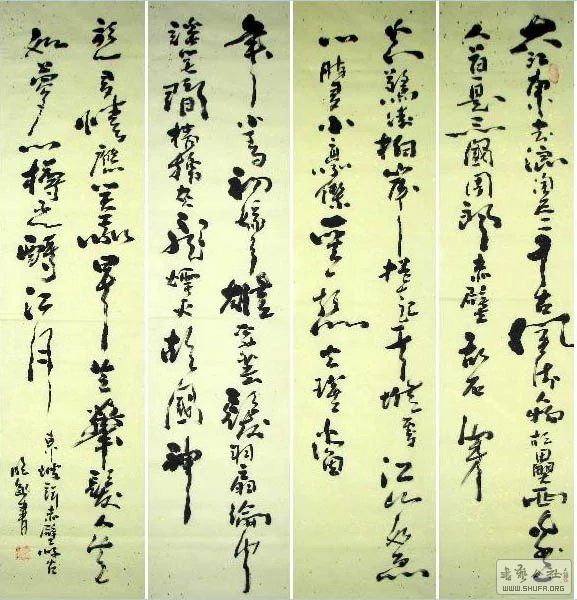 大江東去浪淘盡千古風流人物故壘西邊
人道是三國周郎赤壁亂石穿
空驚濤拍岸捲起千堆雪江山如畫
一時多少豪傑遙想公瑾當
年小喬初嫁了雄姿英發羽扇綸巾
談笑間檣櫓灰飛煙滅故國神
遊多情應笑我早生華髮人生
如夢一樽還酹江月
東坡詞赤壁懷古
書
WWW.SHUFA.ORG